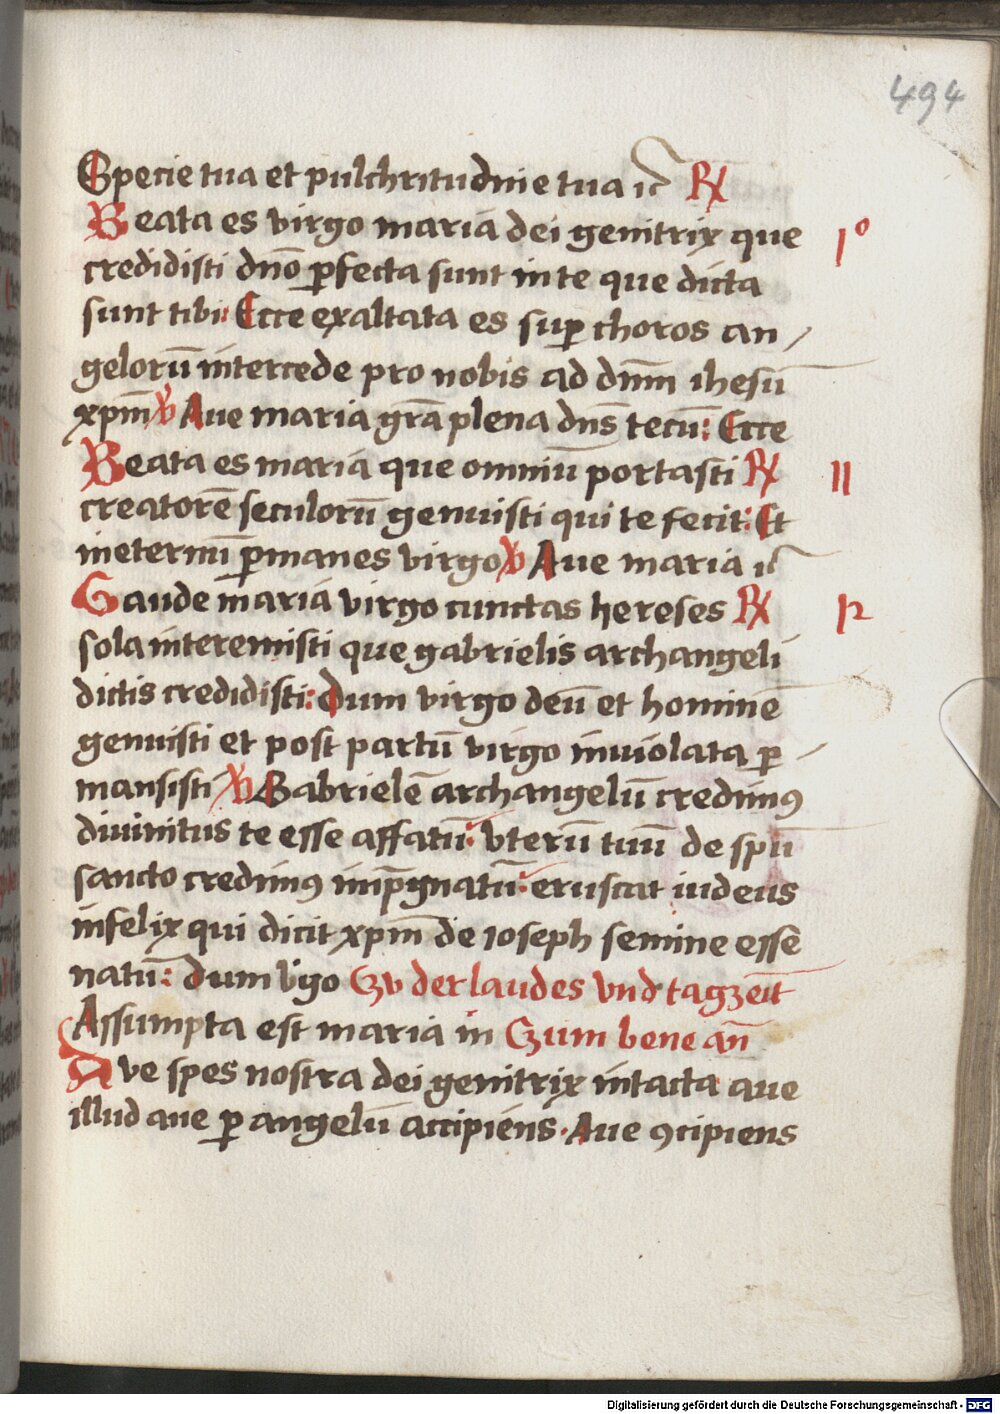 494
Specie tua et pulchritudine tua ic̄ R̷
Beata es virgo maria dei genitrix que 1º
credidisti dn̄o ꝑfecta sunt in te que dicta
sunt tibi: Ecce exaltata es suꝑ choros an /
gelorū intercede pro nobis ad dn̄m ihesū
xp̄m ℣ Aue maria gr̄a plena dn̄s tecū: Ecce
Beata es maria que omniū portasti R̷ 11
creatorē seculorū genuisti qui te fecit: Et
in eternū ꝑmanes virgo ℣ Aue maria ic̄
Gaude maria virgo cunctas hereses R̷ 12
sola interemisti que gabrielis archangeli
dictis credidisti: Dum virgo deū et hominē
genuisti et post partū virgo inuiolata ꝑ /
mansisti ℣ Gabrielē archangelū credimꝰ
diuinitus te esse affatū: vterū tuū de spū
sancto credimꝰ imp̄gnatū: eruscat iudeus
infelix qui dicit xp̄m de ioseph semine esse
natū: dum v̄go Zv der laudes vnd tagzeit
Assumpta est maria in Zum bene an̄
Ave spes nostra dei genitrix intacta aue
illud aue ꝑ angelū accipiens. Aue ꝯcipiens
Digitalisierung gefördert durch die Deutsche Forschungsgemeinschaft - DFG